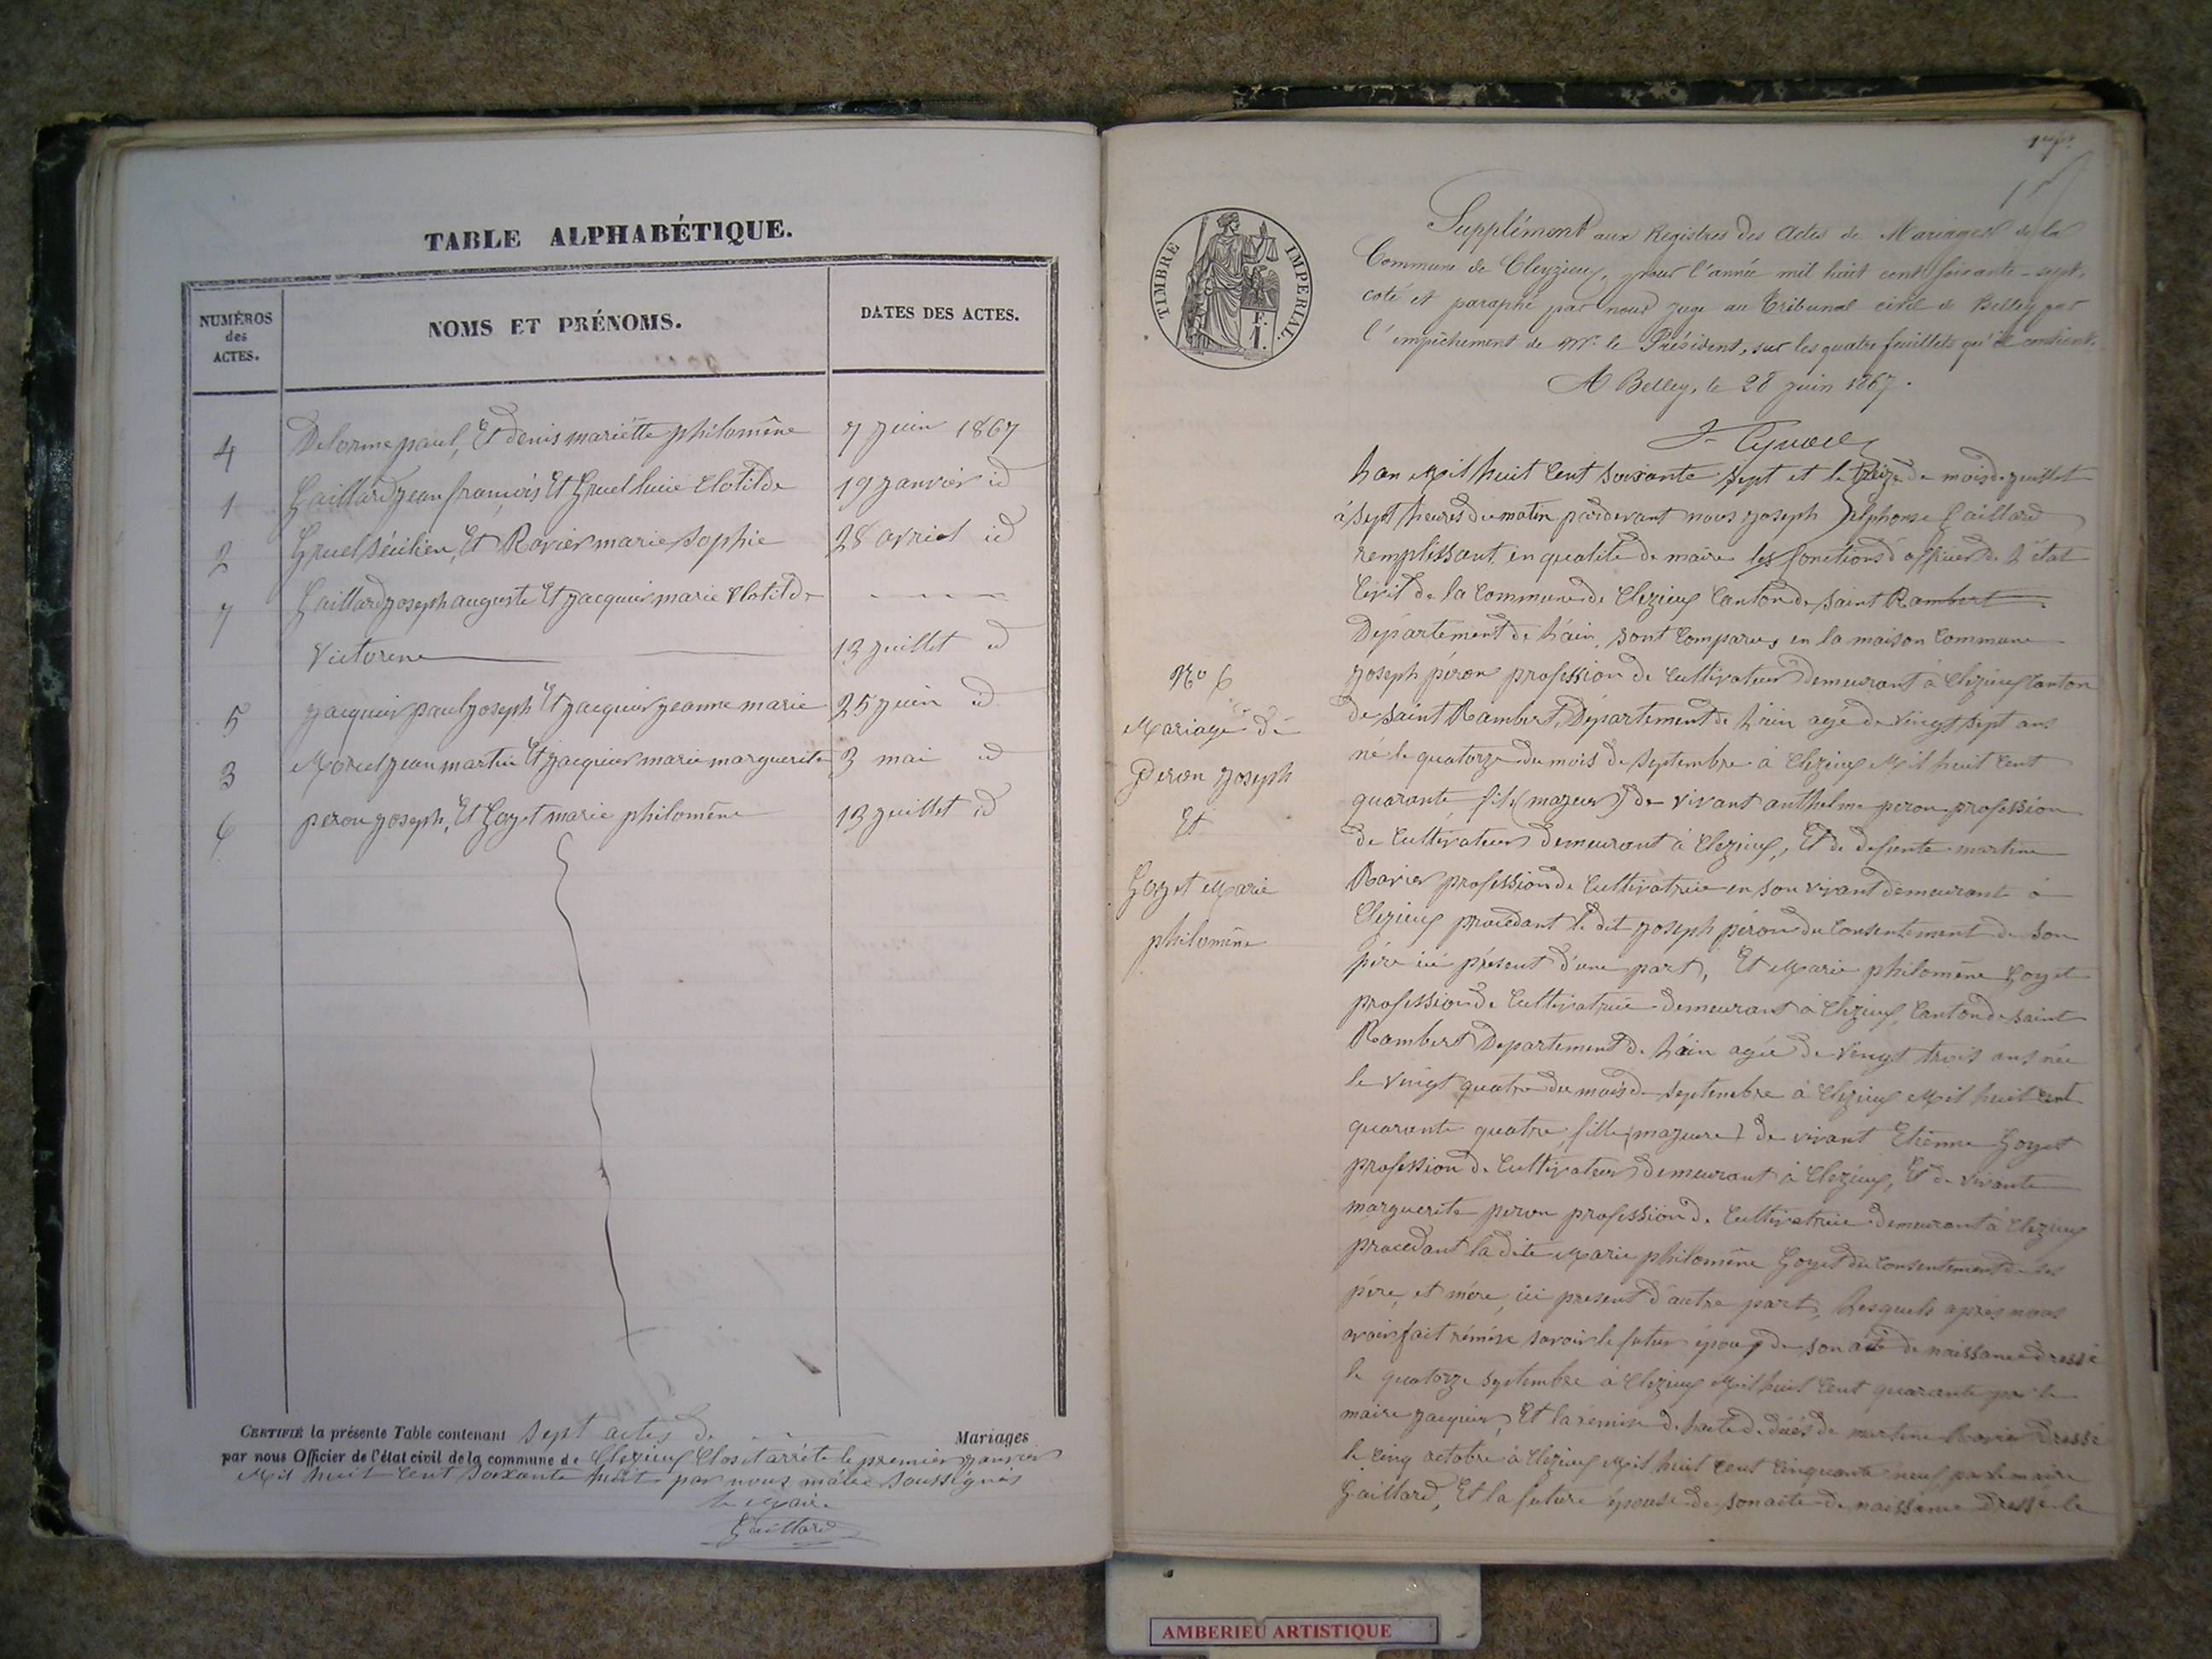 TABLE ALPHABÉTIQUE.
NUMÉROS des ACTES.
NOMS ET PRÉNOMS.
DATES DES ACTES.
4 Delorme paul, Et denis mariette philomène 7 juin 1867
1 Gaillard jean françois Et Gruel lucie Clotilde 19 janvier id
2 Gruel Sécilien, Et Ravier marie Sophie 28 avril id
7 Gaillard joseph auguste Et jacquier marie Clotilde
Victorene 13 juillet id
5 jacquier paul joseph Et jacquier jeanne marie 25 juin id
3 Morel jean martin Et jacquier marie marguerite 3 mai id
6 peron joseph, Et Goyet marie philomène 13 juillet id
CERTIFIÉ la présente Table contenant sept actes de Mariages
par nous Officier de l'état civil de la commune de Clezieu Clos et arrêté le premier janvier
Mil huit Cent soixante huit par nous maire soussignés
le Maire
Gaillard
TIMBRE IMPERIAL.
1 F.
Supplément aux Registres des Actes de Mariages de la
Commune de Cleyzieu, pour l'année mil huit cent soixante-sept,
coté et paraphé par nous juge au Tribunal civil de Belley par
l'empêchement de Mr. le Président, sur les quatre feuillets qu'il contient.
A Belley, le 28 juin 1867.
Lan Mil huit Cent soixante sept et le treize du mois de juillet
à sept heures du matin pardevant nous joseph alphonse Gaillard
remplissant en qualité de maire les fonctions d'officier de l'état
Civil de la Commune de Clezieu Canton de Saint Rambert
Département de l'ain, sont Comparus en la maison Commune
No 6
Mariage de
Peron joseph
Et
Goyet Marie
philomène
joseph péron profession de Cultivateur demeurant à Clezieu Canton
de Saint Rambert, Département de l'ain agé de Vingt sept ans
né le quatorze du mois de Septembre à Clezieu Mil huit Cent
quarante fils (majeur) de vivant anthelme peron profession
de Cultivateur demeurant à Clezieu, Et de defunte martine
Ravier profession de Cultivatrice en son vivant demeurant à
Clezieu procédant le dit joseph péron du Consentement de son
père ici présent d'une part, Et Marie philomène Goyet
profession de Cultivatrice demeurant à Clezieu, Canton de saint
Rambert Département de l'ain agée de Vingt trois ans née
le vingt quatre du mois de septembre à Clezieu Mil huit Cent
quarante quatre, fille (majeure) de vivant Etienne Goyet
profession de Cultivateur demeurant à Clezieu, Et de vivante
marguerite peron profession de Cultivatrice demeurant à Clezieu
procedant la dite Marie philomène Goyet du Consentement de ses
père, et mère, ici present d'autre part, Lesquels après nous
avoir fait rémise savoir le futur époux de son acte de naissance dressé
le quatorze septembre à Clezieu Mil huit Cent quarante par le
maire jacquier, Et la remise de l'acte de décés de martine Ravier dressé
le cinq octobre à Clezieu Mil huit Cent Cinquante neuf par le maire
Gaillard, Et la future épouse de son acte de naissance dressé le
AMBERIEU ARTISTIQUE